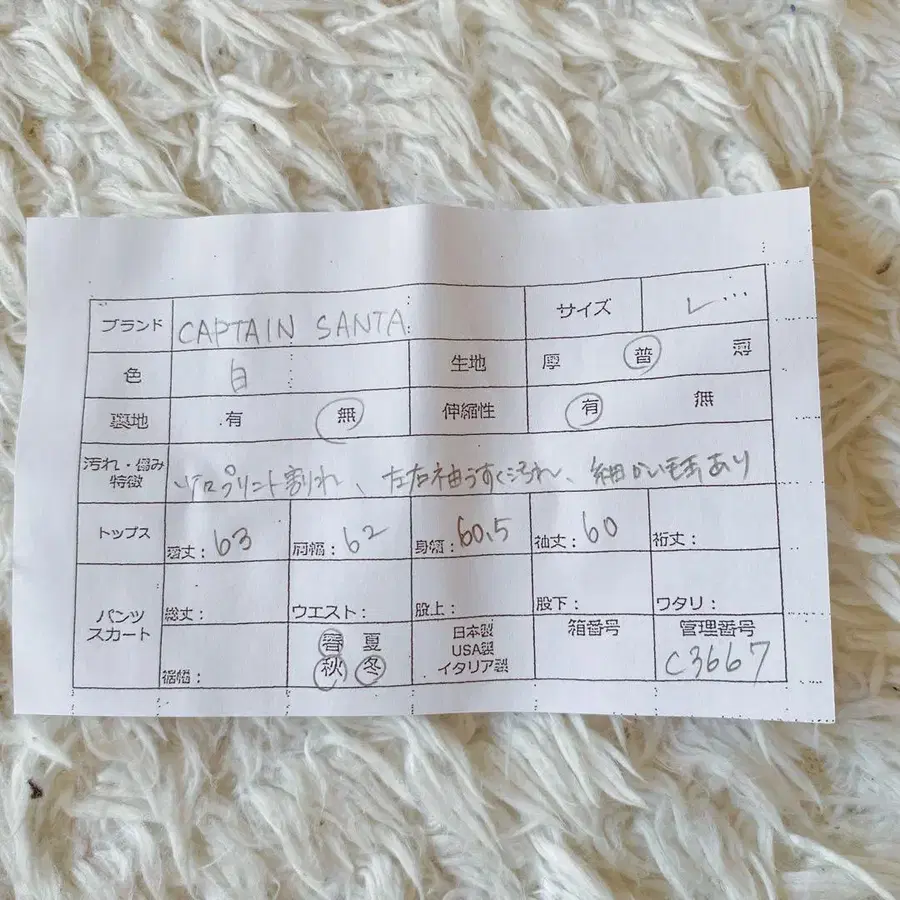 ブランド CAPTAIN SANTA サイズ L
色 白 生地 厚 普 薄
裏地 有 無 伸縮性 有 無
汚れ・傷み
特徴
プリント割れ、左右袖うすく汚れ、細かい毛玉あり
トップス 着丈：63 肩幅：62 身幅：60.5 袖丈：60 裄丈：
パンツ
スカート
総丈： ウエスト：股上： 股下： ワタリ：
裾幅：
春 夏
秋 冬
日本製
USA製
イタリア製
箱番号
管理番号
C3667